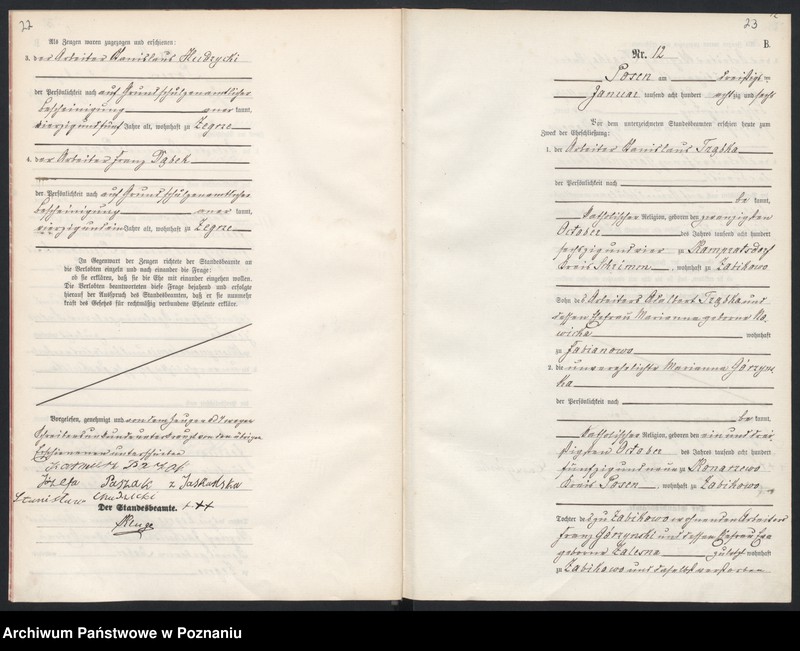 22
Als Zeugen waren zugezogen und erschienen:
3. der Arbeiter Stanislaus Chudzycki
der Persönlichkeit nach auf Grund schulzenamtlicher
Bescheinigung anerkannt,
vierzig und fünf Jahre alt, wohnhaft zu Zegrze
4. der Arbeiter Franz Dąbek
der Persönlichkeit nach auf Grund schulzenamtlicher
Bescheinigung anerkannt,
vierzig und ein Jahre alt, wohnhaft zu Zegrze
In Gegenwart der Zeugen richtete der Standesbeamte an
die Verlobten einzeln und nach einander die Frage:
ob sie erklären, daß sie die Ehe mit einander eingehen wollen.
Die Verlobten beantworteten diese Frage bejahend und erfolgte
hierauf der Ausspruch des Standesbeamten, daß er sie nunmehr
kraft des Gesetzes für rechtmäßig verbundene Eheleute erkläre.
Vorgelesen, genehmigt und von dem Zeugen 4 wegen
Schreibensunkunde unterkreuzt von den übrigen
Erschienenen unterschrieben
Józefa Paszak z Jaskulska
Stanisław Chudzicki
Der Standesbeamte. +++
23
B.
Nr. 12
Posen am dreißigten
Januar tausend acht hundert achtzig und sechs
Vor dem unterzeichneten Standesbeamten erschien heute zum
Zweck der Eheschließung:
1. der Arbeiter Stanislaus Trąbka
der Persönlichkeit nach
be kannt,
katholischer Religion, geboren den zwanzigsten
October des Jahres tausend acht hundert
sechszig und vier zu
Kreis Schrimm, wohnhaft zu Zabikowo
Sohn des Arbeiters Adalbert Trąbka und
dessen Ehefrau Marianna geborne No-
wicka wohnhaft
zu Fabianowo
2. die unverehelichte Marianna Górzyns-
ka
der Persönlichkeit nach
be kannt,
katholischer Religion, geboren den ein und drei-
ßigsten October des Jahres tausend acht hundert
fünfzig und neun zu Konarzewo
Kreis Posen, wohnhaft zu Zabikowo
Tochter des zu Zabikowo wohnenden Arbeiters
Franz Górzynski und dessen Ehefrau Eva
geborene Zalesna zuletzt wohnhaft
zu Zabikowo und daselbst verstorben
Archiwum Państwowe w Poznaniu